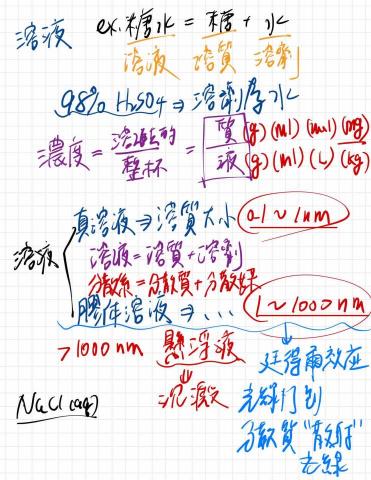 溶液 ex.糖水 = 糖 + 水
溶液 溶質 溶劑
98% H₂SO₄ ⇒ 溶劑為水
濃度 = 溶進去的/整杯 = 質/液 (g)(ml)(mol)(mg)/(g)(ml)(L)(kg)
真溶液 ⇒ 溶質大小 0.1 ~ 1nm
溶液 溶液 = 溶質 + 溶劑
分散系 = 分散質 + 分散媒
膠體溶液 ⇒ ... 1 ~ 1000 nm
> 1000 nm 懸浮液
⇓
沉澱
廷得爾效應
光線打到
分散質"散射"
光線
NaCl(aq)